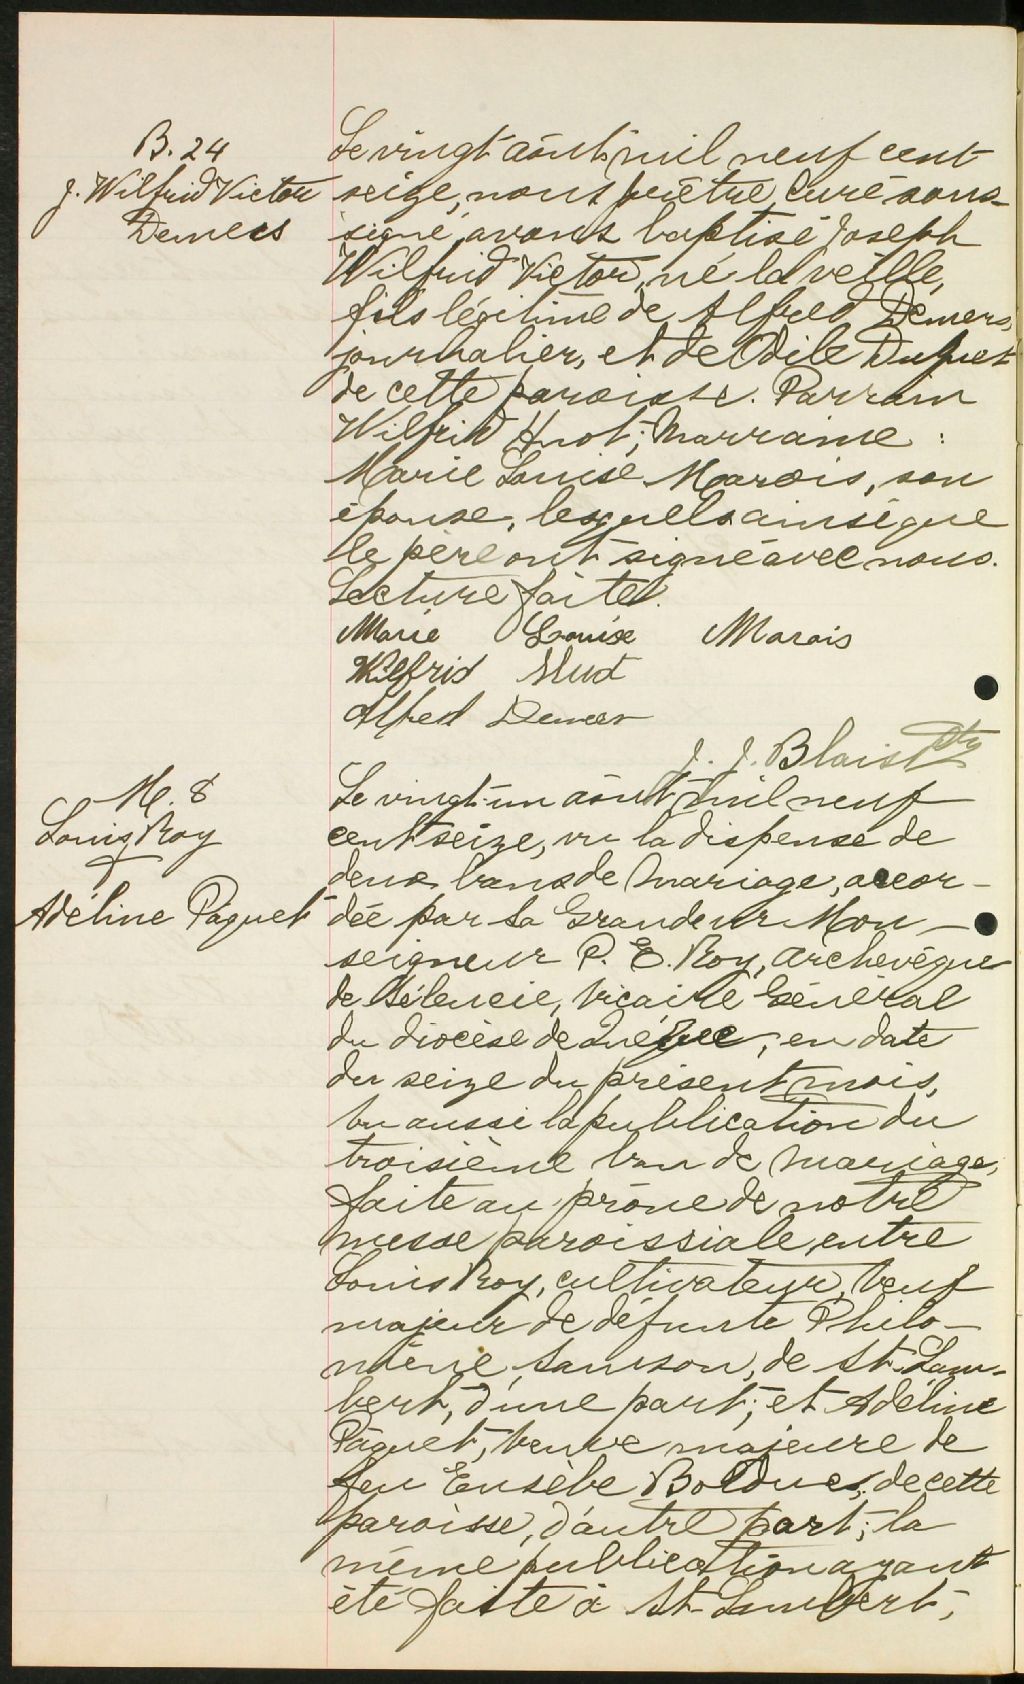 B. 24
J. Wilfrid Victor
Demers
Le vingt août mil neuf cent
seize, nous prêtre, curé sous-
signé, avons baptisé Joseph
Wilfrid Victor, né la veille,
fils légitime de Alfred Demers,
journalier, et de Odile Duquet
de cette paroisse. Parrain
Wilfrid Huot; Marraine :
Marie Louise Marois, son
épouse, lesquels ainsi que
le père ont signé avec nous.
Lecture faite.
Marie Louise Marois
Wilfrid Huot
Alfred Demers
J. J. Blais Ptr
M. 8
Louis Roy
&
Adéline Paquet
Le vingt-un août mil neuf
cent seize, vu la dispense de
deux bans de mariage, accor-
dée par Sa Grandeur Mon-
seigneur P. E. Roy, archevêque
de Séleucie, Vicaire Général
du diocèse de Québec, en date
du seize du présent mois,
vu aussi la publication du
troisième ban de mariage,
faite au prône de notre
messe paroissiale, entre
Louis Roy, cultivateur, veuf
majeur de défunte Philo-
mène Samson, de St-Lam-
bert, d'une part; et Adéline
Pâquet, veuve majeure de
feu Eusèbe Bolduc, de cette
paroisse, d'autre part; la
même publication ayant
été faite à St-Lambert,